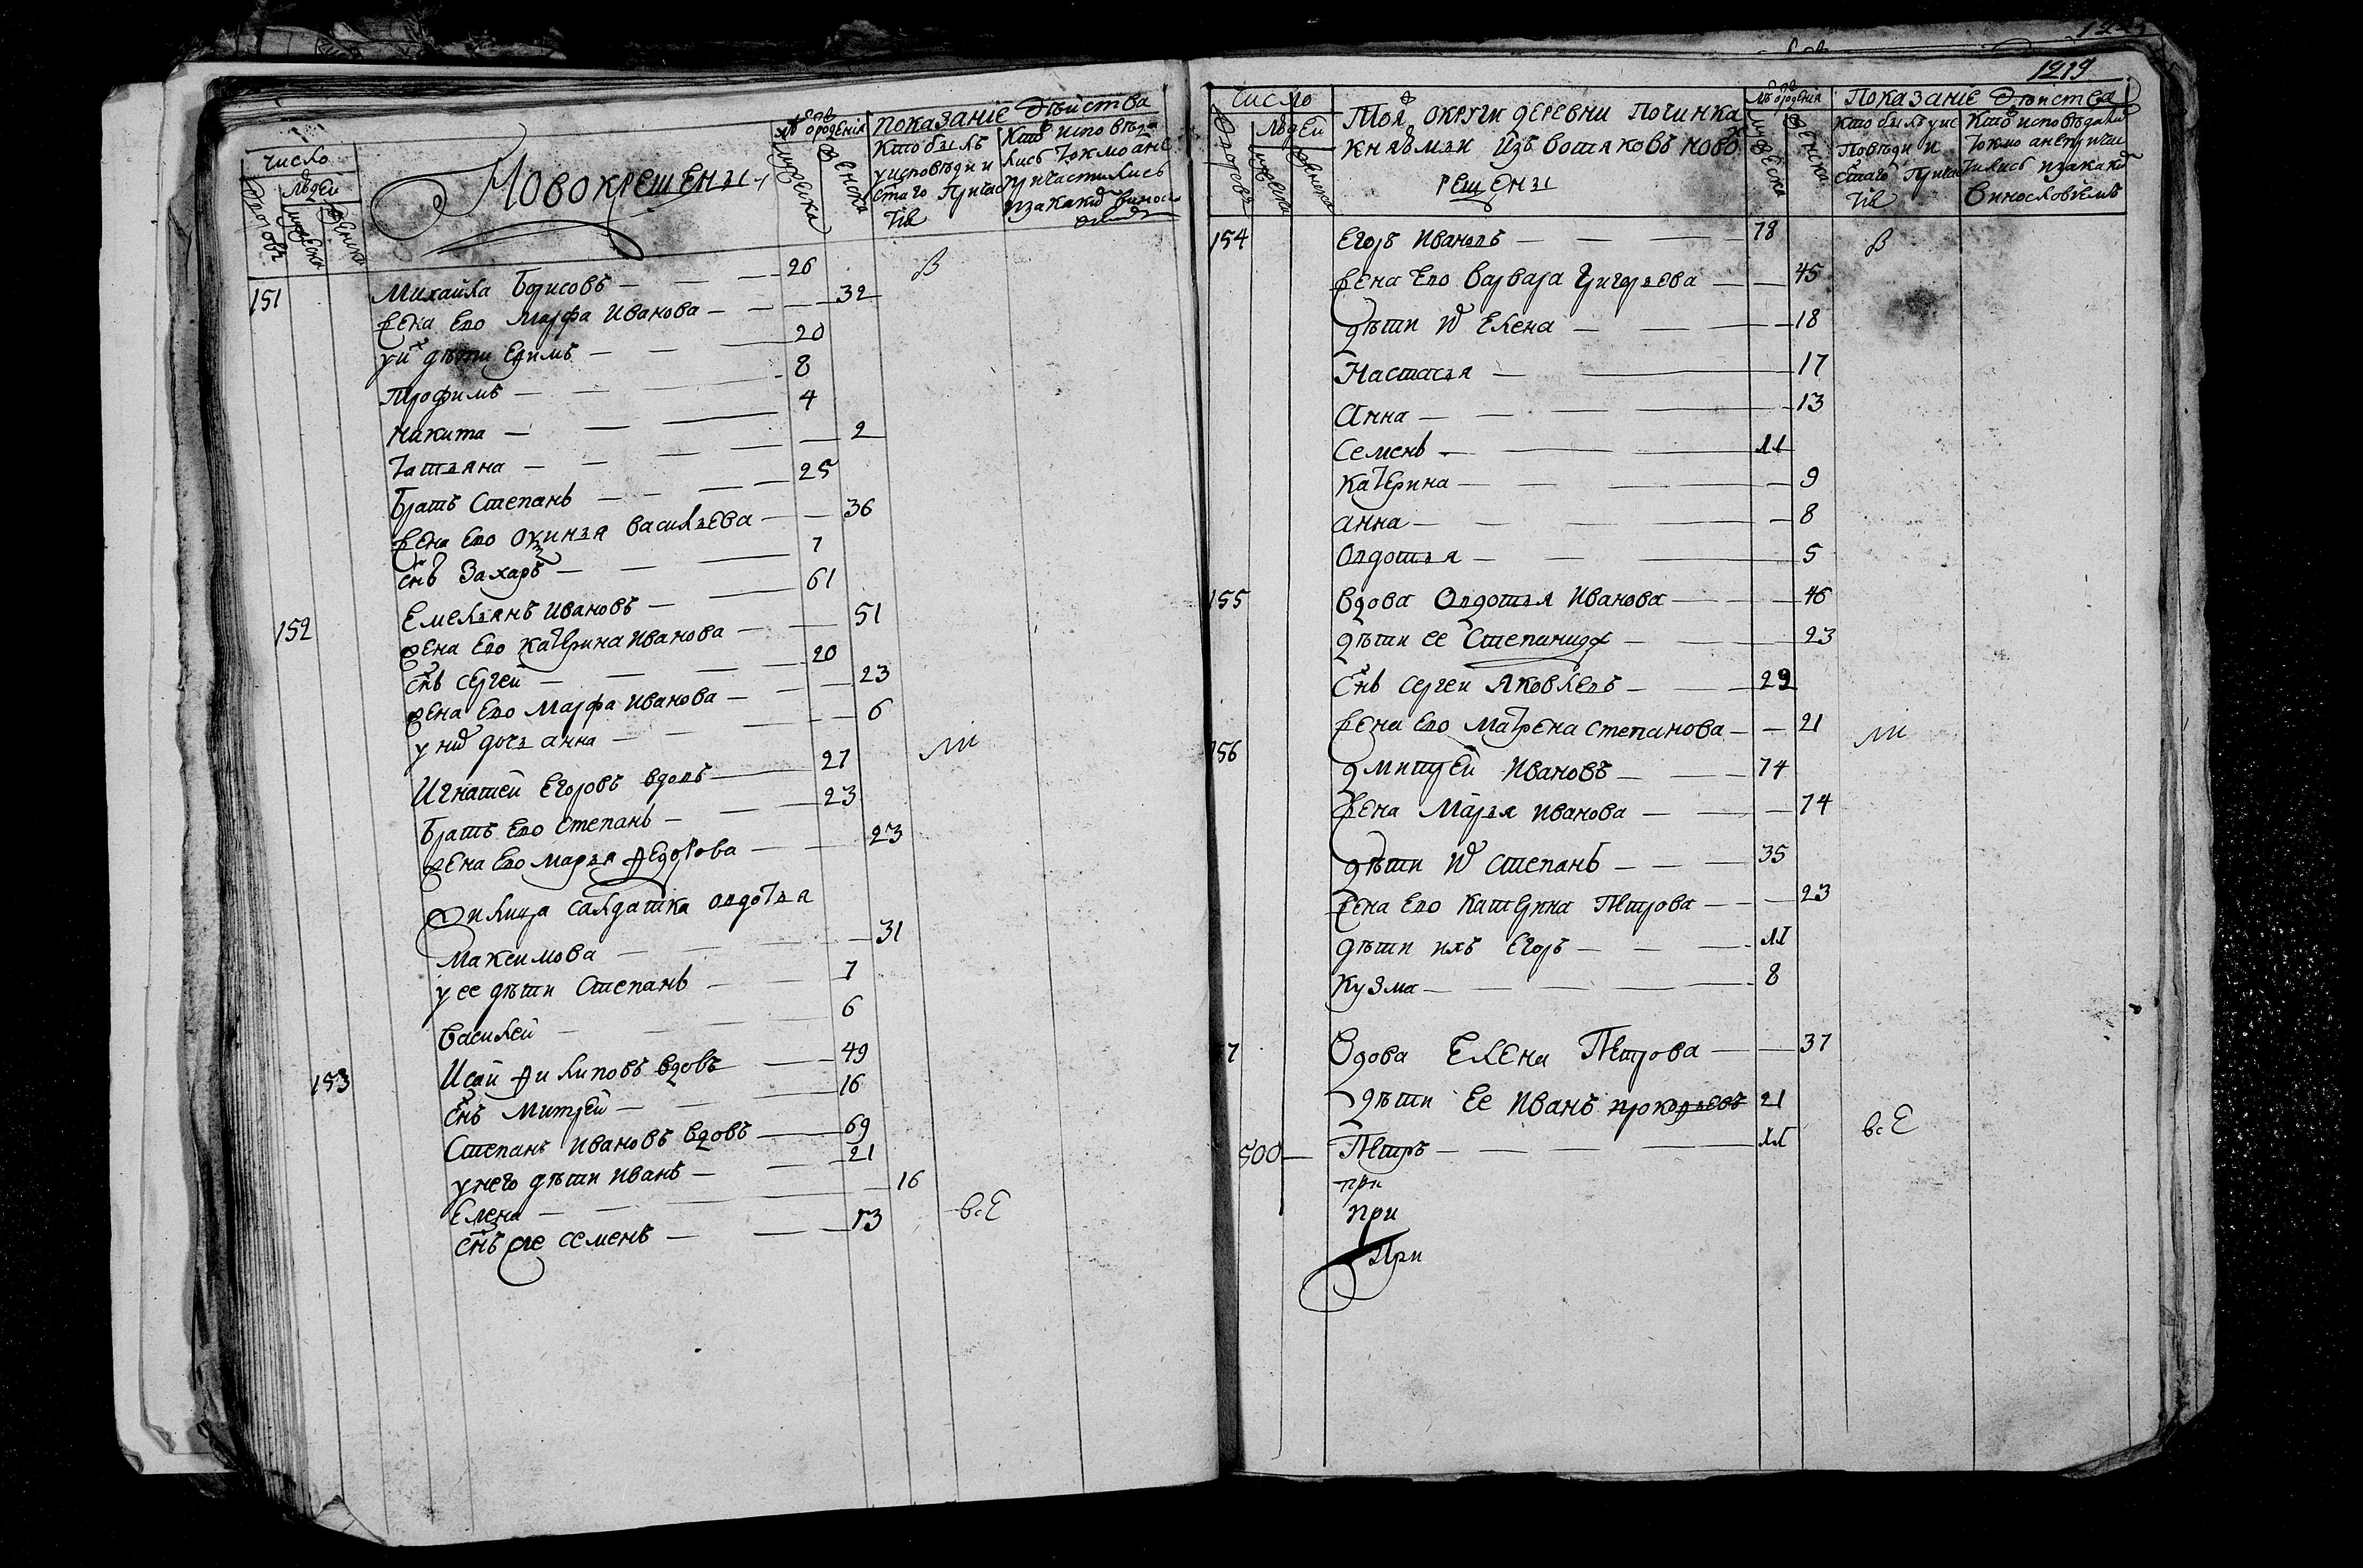 Число
людей
дворовъ
мужеска
женска
Новокрещены
лѣта отъ рождения
мужеска
женска
показание дѣйства
кто былъ
у исповѣди и
стаго Прича
тїя
Кто исповѣда
лись токмо а не
причастились
и за какимъ винос
151 Михаила Борисовъ 26
жена Ево Марфа Иванова 32
у ихъ дѣти Ефимъ 20
Трофимъ 8
Никита 4
Татьяна 2
Братъ Степанъ 25
жена Ево Окинья Васильева 36
снъ Захаръ 7
152 Емельянъ Ивановъ 61
жена Ево Катерина Иванова 51
снъ Сергей 20
жена Ево Марфа Иванова 23
у нихъ дочь Анна 6
Игнатей Егоровъ вдовъ 27
Братъ Ево Степанъ 23
жена Ево Марья Федорова 23
жилица салдатка Овдотья
Максимова 31
у ее дѣти Степанъ 7
Василей 6
153 Исай Филиповъ вдовъ 49
снъ Митрей 16
Степанъ Ивановъ вдовъ 69
у него дѣти Иванъ 21
Елена 16
снъ же Семенъ 13
всѣ
1219
число
людей
дворовъ
мужеска
женска
Той округи деревни Починка
Княъмзи Изъ вотяковъ новок
рещены
лѣ отрождения
мужеска
женска
Показание дѣиства
кто былъ у ис
Повѣди и
стаго Прича
тїя
Кто исповѣдали
токмо а не прича
тились и за каки
винословиемъ
154 Егоръ Ивановъ 78
жена Ево Варвара Григорьева 45
дѣти ихъ Елена 18
Настасья 17
Анна 13
Семенъ 11
Катерина 9
анна 8
Овдотья 5
155 вдова Овдотья Иванова 46
дѣти ее Степанида 23
снъ Сергеи Яковлевъ 29
жена Ево Матрена Степанова 21
156 Дмитрей Ивановъ 74
жена Марья Иванова 74
дѣти ихъ Степанъ 35
жена Ево Катерина Петрова 23
дѣти ихъ Егоръ 11
Кузма 8
7 Вдова Елена Петрова 37
дѣти Ее Иванъ Прокопьевъ 21
500 Петръ 11
всѣ
при
при
При